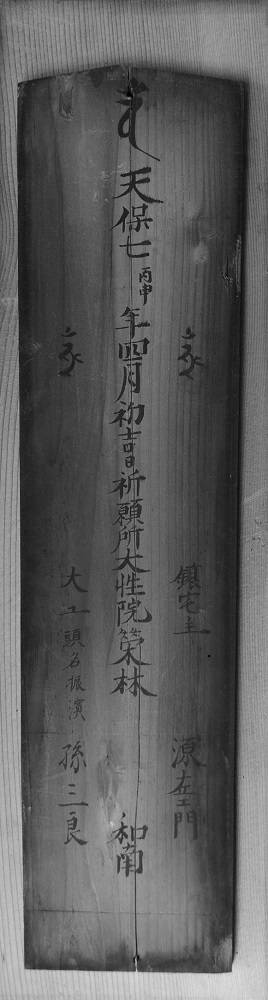 鎮宅主 源左エ門
天保七丙申年四月初吉日祈願所大性院榮林 和南
大工頭名振濱 孫三良